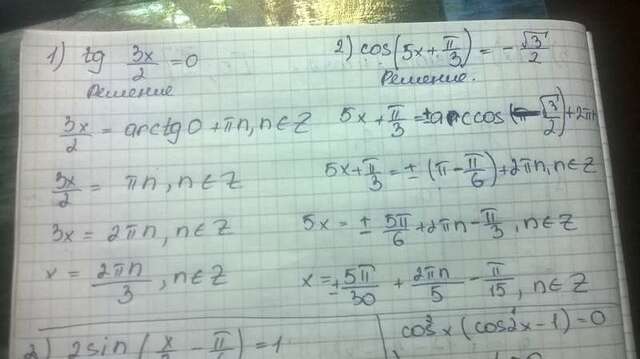 1) tg 3x/2 = 0
Решение
3x/2 = arctg 0 + πn, n ∈ Z
3x/2 = πn, n ∈ Z
3x = 2πn, n ∈ Z
x = 2πn/3, n ∈ Z
2) cos(5x + π/3) = -√3/2
Решение.
5x + π/3 = ± arccos(-√3/2) + 2πn
5x + π/3 = ± (π - π/6) + 2πn, n ∈ Z
5x = ± 5π/6 + 2πn - π/3, n ∈ Z
x = ± 5π/30 + 2πn/5 - π/15, n ∈ Z
3) 2sin(x/2 - π/ ) = 1
cos²x (cos²x - 1) = 0